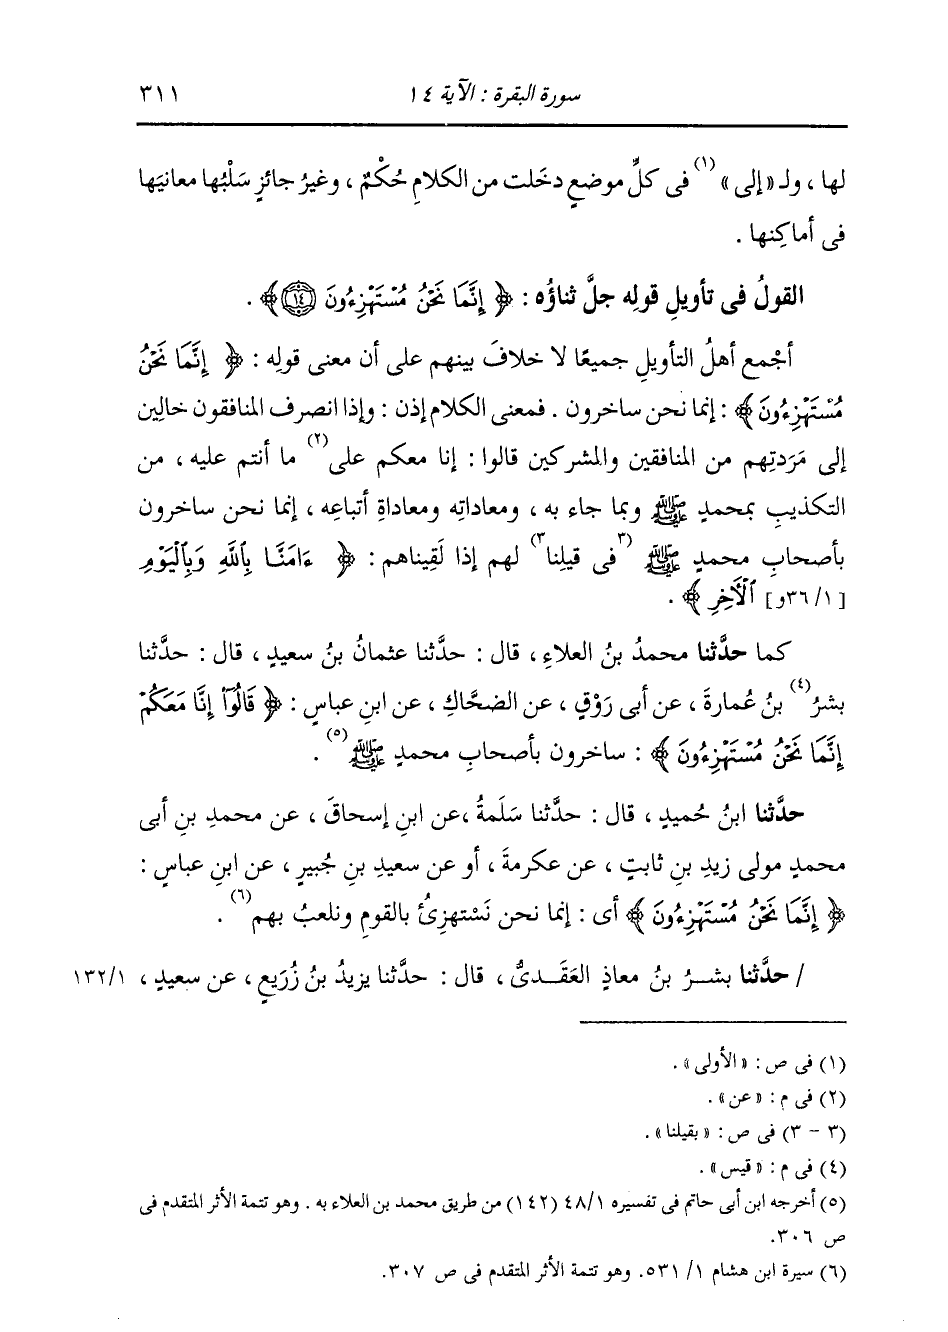 سورة البقرة : الآية ١٤ ٣١١
لها ، ولـ «إلى» (١) فى كلِّ موضعٍ دخَلت من الكلامِ حُكْمٌ ، وغيرُ جائزٍ سَلْبُها معانيَها
فى أماكِنها .
القولُ فى تأويلِ قولِه جلَّ ثناؤُه : ﴿ إِنَّمَا نَحْنُ مُسْتَهْزِءُونَ ١٤ ﴾ .
أجْمع أهلُ التأويلِ جميعًا لا خلافَ بينهم على أن معنى قولِه : ﴿ إِنَّمَا نَحْنُ
مُسْتَهْزِءُونَ ﴾ : إنما نحن ساخرون . فمعنى الكلامِ إذن : وإذا انصرف المنافقون خالِين
إلى مَرَدتِهم من المنافقين والمشركين قالوا : إنا معكم على (٢) ما أنتم عليه ، من
التكذيبِ بمحمدٍ ﷺ وبما جاء به ، ومعاداتِه ومعاداةِ أتباعِه ، إنما نحن ساخرون
بأصحابِ محمدٍ ﷺ (٣ فى قيلِنا ٣) لهم إذا لَقِيناهم : ﴿ ءَامَنَّا بِٱللَّهِ وَبِٱلْيَوْمِ
[٣٦/١و] ٱلْآخِرِ ﴾ .
كما حدَّثنا محمدُ بنُ العلاءِ ، قال : حدَّثنا عثمانُ بنُ سعيدٍ ، قال : حدَّثنا
بشرُ (٤) بنُ عُمارةَ ، عن أبى رَوْقٍ ، عن الضحَّاكِ ، عن ابنِ عباسٍ : ﴿ قَالُوٓا۟ إِنَّا مَعَكُمْ
إِنَّمَا نَحْنُ مُسْتَهْزِءُونَ ﴾ : ساخرون بأصحابِ محمدٍ ﷺ (٥) .
حدَّثنا ابنُ حُميدٍ ، قال : حدَّثنا سَلَمةُ ،عن ابنِ إسحاقَ ، عن محمدِ بنِ أبى
محمدٍ مولى زيدِ بنِ ثابتٍ ، عن عكرمةَ ، أو عن سعيدِ بنِ جُبيرٍ ، عن ابنِ عباسٍ :
﴿ إِنَّمَا نَحْنُ مُسْتَهْزِءُونَ ﴾ أى : إنما نحن نَسْتهزِئُ بالقومِ ونلعبُ بهم (٦) .
/ حدَّثنا بشرُ بنُ معاذٍ العَقَدىُّ ، قال : حدَّثنا يزيدُ بنُ زُرَيعٍ ، عن سعيدٍ ، ١٣٢/١
(١) فى ص : «الأولى» .
(٢) فى م : «عن» .
(٣ - ٣) فى ص : «بقيلنا» .
(٤) فى م : «قيس» .
(٥) أخرجه ابن أبى حاتم فى تفسيره ٤٨/١ (١٤٢) من طريق محمد بن العلاء به . وهو تتمة الأثر المتقدم فى
ص ٣٠٦.
(٦) سيرة ابن هشام ١/ ٥٣١. وهو تتمة الأثر المتقدم فى ص ٣٠٧.